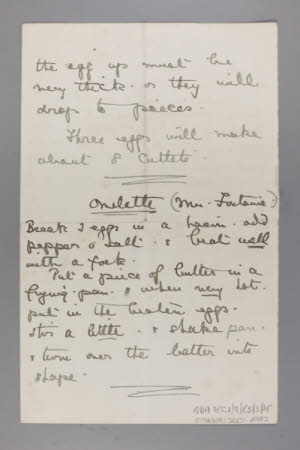 the egg ups must be
very thick. or they will
drop to peices.
Three eggs will make
about 8 Cutlets.
Omelette (Mrs. Fontaine.)
Break 2 eggs in a basin. add
pepper & salt. & beat well
with a fork.
Put a piece of butter in a
frying-pan. & when very hot.
put in the beaten eggs.
Stir a little. & shake pan.
& turn over the batter into
shape.